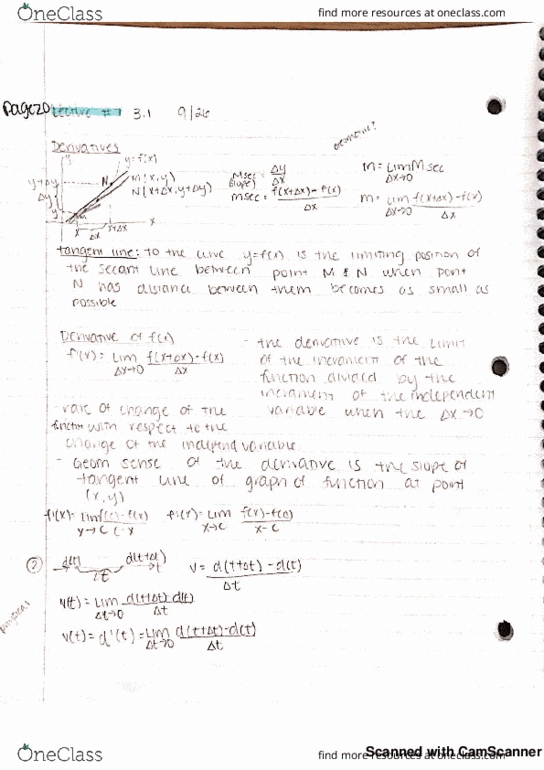 OneClass
find more resources at oneclass.com
page20 Lecture # 1 3.1 9/26
Derivatives
geometric?
y
y=f(x)
y+Δy
Δy
y
N
M(x,y)
N(x+Δx, y+Δy)
x
Δx
x+Δx
x
Msec = Δy/Δx
(slope)
msec = f(x+Δx)-f(x)/Δx
m = lim Msec
Δx→0
m = lim f(x+Δx)-f(x)/Δx
Δx→0
tangent line: to the curve y=f(x) is the limiting position of
the secant line between point M & N when point
N has distance between them becomes as small as
possible
Derivative of f(x)
f'(x) = lim f(x+Δx)-f(x)/Δx
Δx→0
- the derivitive is the limit
of the incrament of the
function divided by the
incrament of the independent
variable when the Δx→0
- rate of change of the
function with respect to the
change of the independ variable
- Geom sense of the derivative is the slope of
tangent line of graph of function at point
(x,y)
f'(x) = lim
f(x)-f(c)
x→c
x-c
②
d(t)
d(t+Δt)
Δt
v = d(t+Δt)-d(t)/Δt
v(t) = lim d(t+Δt)-d(t)/Δt
Δt→0
v(t) = d'(t) = lim d(t+Δt)-d(t)/Δt
Δt→0
OneClass
find more resources at oneclass.com
Scanned with CamScanner